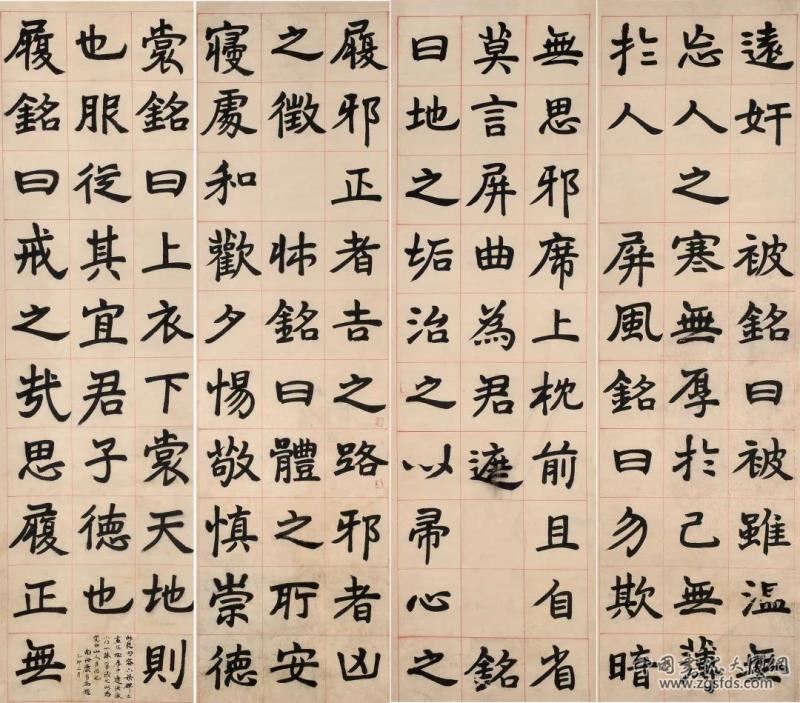 遠奸 被銘曰被雖溫無
忘人之寒無厚於己無薄
於人 屏風銘曰勿欺暗
無思邪席上枕前且自省
莫言屏曲為君遮 銘
曰地之垢治之以帚心之
履邪正者吉之路邪者凶
之徵 牀銘曰體之所安
寢處和歡夕惕敬慎崇德
裳銘曰上衣下裳天地則
也服從其宜君子德也
履銘曰戒之哉思履正無
www.zgsfds.com